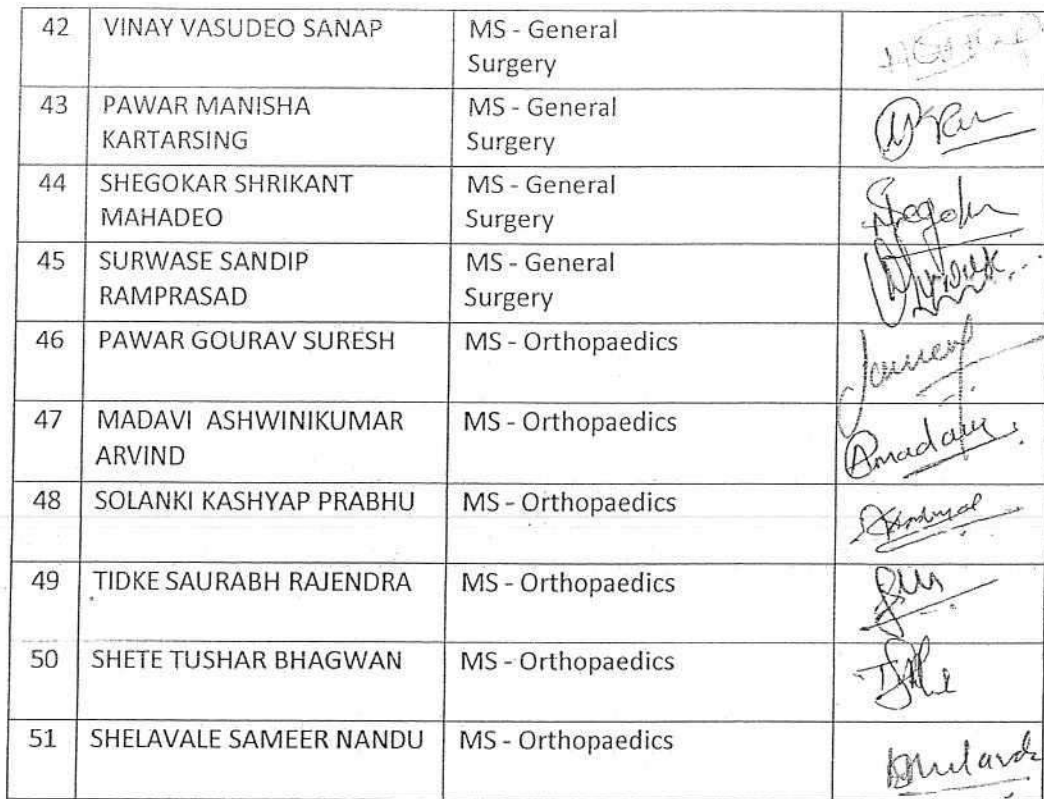 42 VINAY VASUDEO SANAP MS - General
Surgery
43 PAWAR MANISHA MS - General
KARTARSING Surgery
44 SHEGOKAR SHRIKANT MS - General
MAHADEO Surgery
Shegokar
45 SURWASE SANDIP MS - General
RAMPRASAD Surgery
46 PAWAR GOURAV SURESH MS - Orthopaedics
47 MADAVI ASHWINIKUMAR MS - Orthopaedics
ARVIND
Amadavi
48 SOLANKI KASHYAP PRABHU MS - Orthopaedics
49 TIDKE SAURABH RAJENDRA MS - Orthopaedics
50 SHETE TUSHAR BHAGWAN MS - Orthopaedics
51 SHELAVALE SAMEER NANDU MS - Orthopaedics